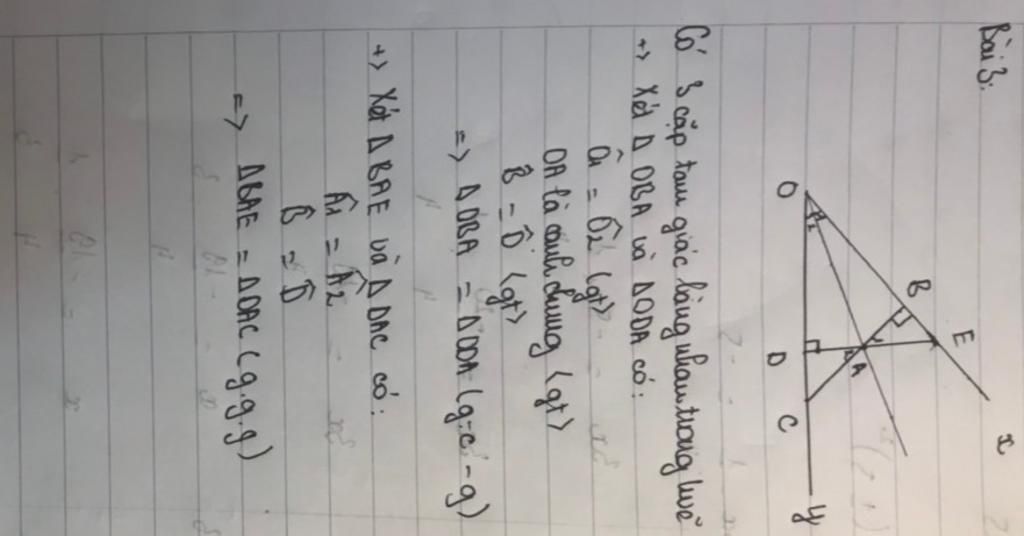 Bài 3:
x
E
B
A
O
D
C
y
Có 3 cặp tam giác bằng nhau trong hình vẽ
+> Xét Δ OBA và ΔODA có:
Ô1 = Ô2 <gt>
OA là cạnh chung <gt>
B̂ = D̂ <gt>
=> Δ OBA = ΔODA (g-c-g)
+> Xét Δ BAE và Δ DAC có:
Â1 = Â2
B̂ = D̂
=> ΔBAE = ΔDAC (g.g.g)